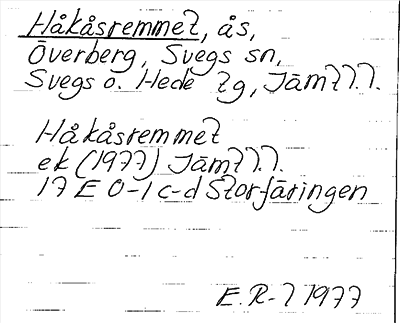 Håkåsremmet, ås,
Överberg, Svegs sn,
Svegs o. Hede tg, Jämtl.l.
Håkåsremmet
ek (1977) Jämtl.l.
17 E 0-1 c-d Storfäringen
E. R-l 1977